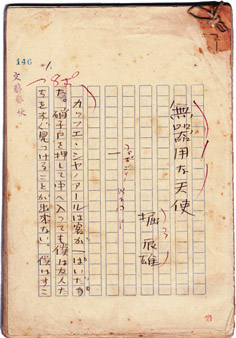 146
無器用な天使
堀辰雄
一
カッフエ・シヤノアールは客が一ぱいだつ
た。硝子戸を押して中へ入つても僕は友人た
ちをすぐ見つけることが出来ない。僕はすこ
文藝春秋